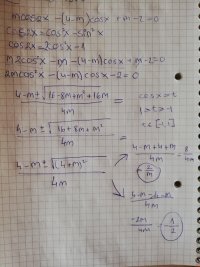 mcos2x - (4-m)cosx + m - 2 = 0
cos2x = cos²x - sin²x
cos2x = 2cos²x - 1
m2cos²x - m - (4-m)cosx + m - 2 = 0
2mcos²x - (4-m)cosx - 2 = 0
4-m ± √16-8m+m²+16m / 4m =
cosx = t
-1 < t > 1
4-m ± √16+8m+m² / 4m =
4-m+4+m / 4m = 8 / 4m
4-m ± √(4+m)² / 4m
2 / m
4-m-4-m / 4m
-2m / 4m